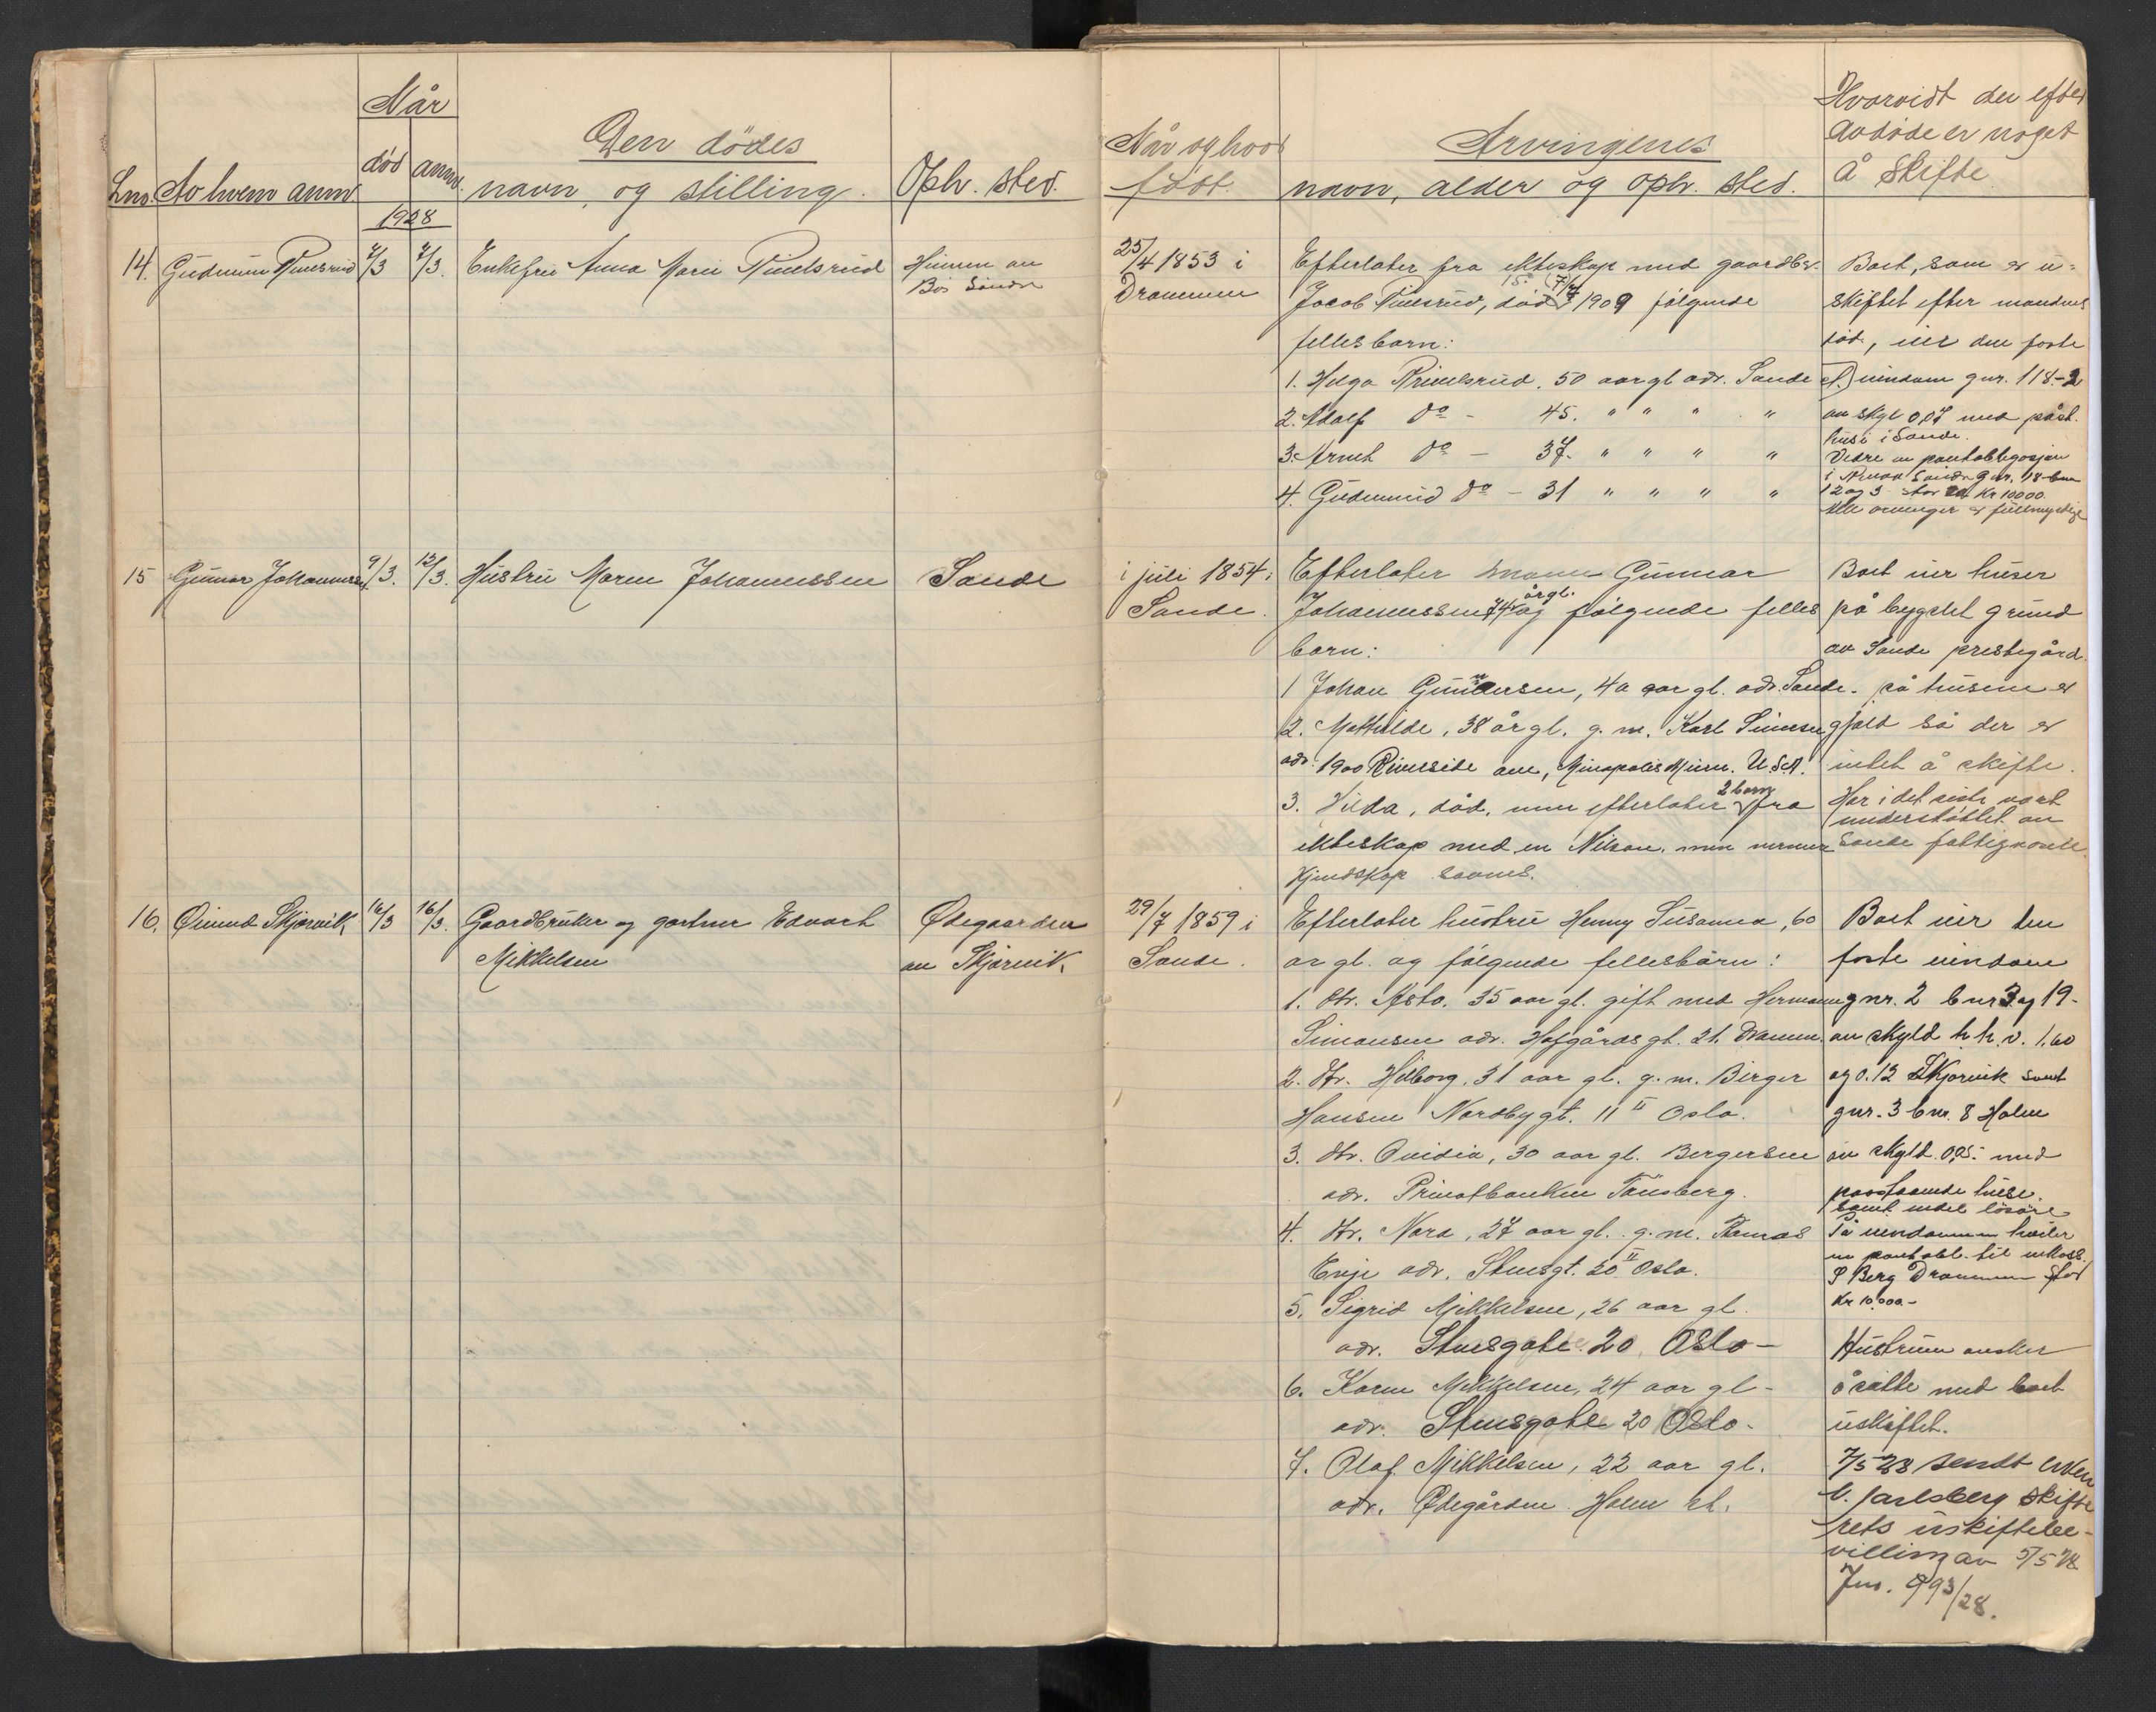 Når
Den dødes
Lnr. Av hvem anm. død anm. navn og stilling. Oph. sted.
1928
14. Gudmun 7/3 7/3. Enkefru Anna Marie
Bø Sande
15 Gunnar Johannessen 9/3. 12/3. Hustru Maren Johannessen Sande
16. Øivind Skjørvik 14/3 16/3. Gaardbruker og gartner Edvart Ødegaarden
Mikkelsen av Skjørvik
Når og hvor
født
Arvingenes
navn, alder og oph. sted.
Hvorvidt der efter
avdøde er noget
å skifte
25/4 1853 i
Drammen
Efterlater fra ekteskap med gaardbr.
Jacob død 1909 følgende
fellesbarn:
1. Helga 50 aar gl adr. Sande
2. Adolf do - 45. " " " "
3. Arnt do - 37. " " " "
4. Gudmund do - 31 " " " "
Boet, som er u-
skiftet efter mandens
død, eier den faste
eiendom gnr. 118.-2
av skyld 0,07 med påst.
huse i Sande.
Videre en pantobligasjon
i Sande gnr. 18 bnr
1 2 og 3 stor Kr 10000.
Alle arvinger er fuldmyndige
i juli 1854 i
Sande.
Efterlater mann Gunnar
Johannessen 74 årgl. og følgende felles
barn:
1 Johan Gunnersen, 40 aar gl. adr. Sande.
2. Mathilde, 38 år gl. g. m. Karl Simensen
adr. 1900 Riverside ave, Minapolis Minn. U.S.A.
3. Hilda, død, men efterlater 2 barn fra
ekteskap med en Nilsen. men nermere
kjendskap savnes.
Boet eier huser
på bygslet grund
av Sande prestegård.
På husene er
gjæld så der er
intet å skifte.
Har i det siste vært
understøttet av
Sande fattigvesen.
29/7 1859 i
Sande.
Efterlater hustru Henny Susanna, 60
ar gl. og følgende fellesbårn:
1. Dtr. Asta, 35 aar gl. gift med Hermann
Simonsen adr. Hofgårds gt. 21. Dramm.
2. Dtr. Hilborg, 31 aar gl. g. m. Birger
Hansen Nordbygt. 11 II Oslo.
3. Dtr. Ovidia, 30 aar gl. Bergersen
adr. Privatbanken Tønsberg.
4. Dtr. Nora, 27 aar gl. g. m. Tomas
Evje adr. Stensgt. 20 II Oslo.
5. Sigrid Mikkelsen, 26 aar gl.
adr. Stensgate 20 Oslo-
6. Karen Mikkelsen, 24 aar gl-
adr. Stensgate 20 Oslo-
7. Olaf Mikkelsen, 22 aar gl.
adr. Ødegården Holm st.
Boet eier den
faste eiendom
gnr. 2 bnr 3 og 19-
av skyld h.h.v. 1.60
og 0.12 Skjørvik samt
gnr. 3 bnr. 8 Holm
av skyld 0,05. med
paastaaende huse.
samt endel løsøre
På eiendommen hviler
en pantobl. til enkefr.
S Berg Drammen stor
Kr 10.000-
Hustruen ønsker
å sitte med boet
uskiftet.
7/5 28 sendt enken
N. Jarlsberg skifte
rets uskiftebe-
villing av 5/5 28
Jnr. 993/28.